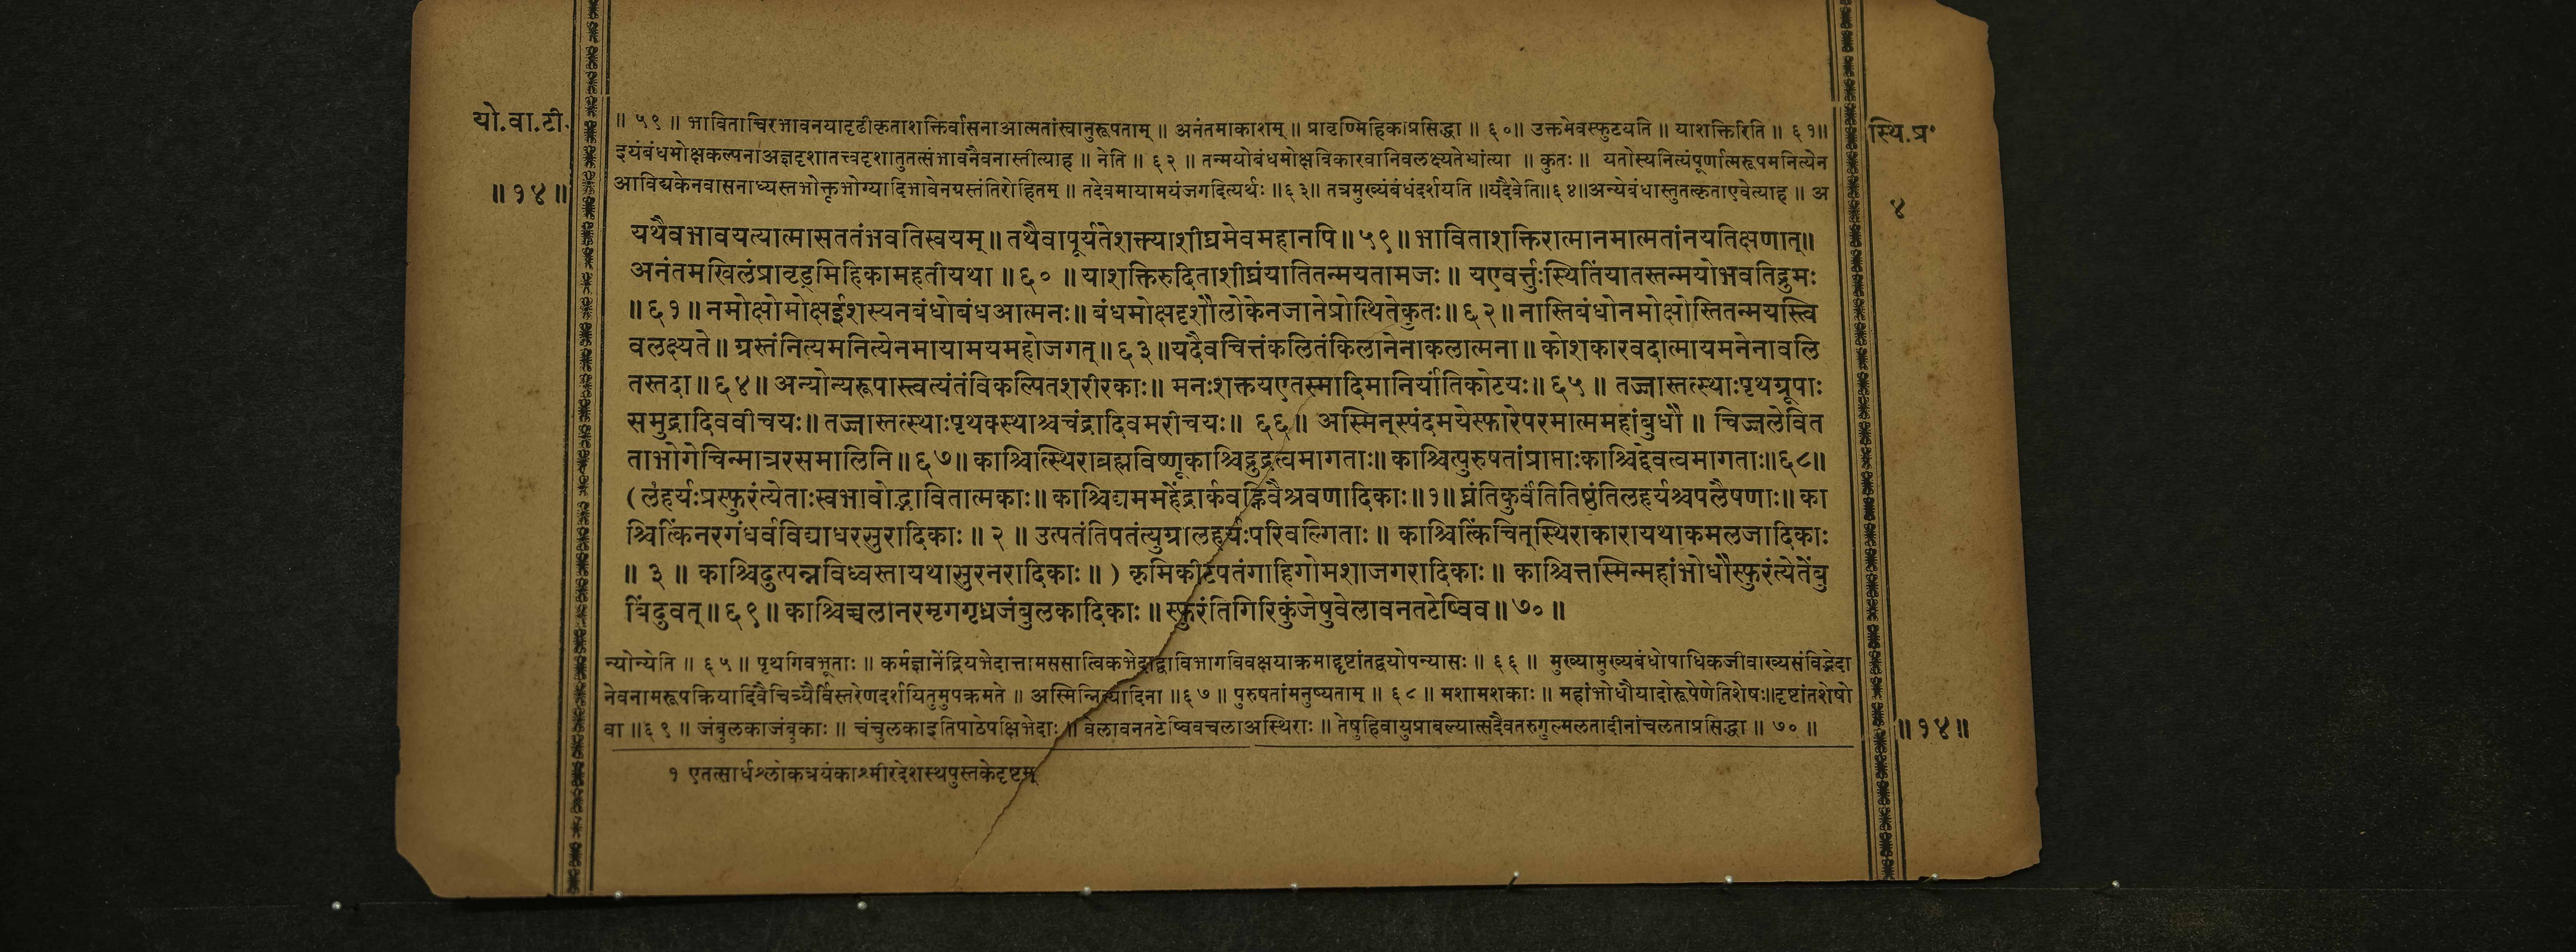 यो.वा.टी.
॥१४॥
॥ ५९ ॥ भाविताचिरभावनयादृढीकृताशक्तिर्वासनाआत्मतांस्वानुरूपताम् ॥ अनंतमाकाशम् ॥ प्रावृण्मिहिकाप्रसिद्धा ॥ ६०॥ उक्तमेवस्फुटयति ॥ याशक्तिरिति ॥ ६१॥
इयंबंधमोक्षकल्पनाअज्ञदृशातत्त्वदृशातुतत्संभावनैवनास्तीत्याह ॥ नेति ॥ ६२ ॥ तन्मयोबंधमोक्षविकारवानिवलक्ष्यतेभ्रांत्या ॥ कुतः ॥ यतोस्यनित्यंपूर्णात्मरूपमनित्येन
आविद्यकेनवासनाध्यस्तभोक्तृभोग्यादिभावेनग्रस्तंतिरोहितम् ॥ तदेवमायामयंजगदित्यर्थः ॥६३॥ तत्रमुख्यंबंधंदर्शयति ॥यदैवेति॥६४॥अन्येबंधास्तुतत्कृताएवेत्याह ॥ अ
यथैवभावयत्यात्मासततंभवतिस्वयम्॥ तथैवापूर्यतेशक्त्याशीघ्रमेवमहानपि॥५९॥भाविताशक्तिरात्मानमात्मतांनयतिक्षणात्॥
अनंतमखिलंप्रावृड्मिहिकामहतीयथा॥६०॥याशक्तिरुदिताशीघ्रंयातितन्मयतामजः॥ यएवर्त्तुःस्थितिंयातस्तन्मयोभवतिद्रुमः
॥६१॥नमोक्षोमोक्षईशस्यनबंधोबंधआत्मनः॥बंधमोक्षदृशौलोकेनजानेप्रोत्थितेकुतः॥६२॥नास्तिबंधोनमोक्षोस्तितन्मयस्त्वि
वलक्ष्यते॥ ग्रस्तंनित्यमनित्येनमायामयमहोजगत्॥६३॥यदैवचित्तंकलितंकिलानेनाकलात्मना॥कोशकारवदात्मायमनेनावलि
तस्तदा॥६४॥ अन्योन्यरूपास्त्वत्यंतंविकल्पितशरीरकाः॥ मनःशक्तयएतस्मादिमानिर्यांतिकोटयः॥६५॥ तज्जास्तत्स्थाःपृथग्रूपाः
समुद्रादिववीचयः॥तज्जास्तत्स्थाःपृथक्स्थाश्चचंद्रादिवमरीचयः॥ ६६॥ अस्मिन्स्पंदमयेस्फारेपरमात्ममहांबुधौ॥ चिज्जलेवित
ताभोगेचिन्मात्ररसमालिनि॥६७॥काश्चित्स्थिराब्रह्मविष्णूकाश्चिद्रुद्रत्वमागताः॥काश्चित्पुरुषतांप्राप्ताःकाश्चिद्देवत्वमागताः॥६८॥
(लहर्यःप्रस्फुरंत्येताःस्वभावोद्भावितात्मकाः॥ काश्चिद्यममहेंद्रार्कवह्निवैश्रवणादिकाः॥१॥घ्नंतिकुर्वंतितिष्ठंतिलहर्यश्चपलैषणाः॥का
श्चित्किंनरगंधर्वविद्याधरसुरादिकाः॥२॥ उत्पतंतिपतंत्युग्रालहर्यःपरिवल्गिताः॥ काश्चित्किंचित्स्थिराकारायथाकमलजादिकाः
॥३॥ काश्चिदुत्पन्नविध्वस्तायथासुरनरादिकाः॥) कृमिकीटपतंगाहिगोमशाजगरादिकाः॥ काश्चित्तस्मिन्महांभोधौस्फुरंत्येतेंबु
बिंदुवत्॥६९॥काश्चिच्चलानरमृगगृध्रजंबुलकादिकाः॥स्फुरंतिगिरिकुंजेषुवेलावनतटेष्विव॥७०॥
न्योन्येति ॥ ६५॥ पृथगिवभूताः ॥ कर्मज्ञानेंद्रियभेदात्तामससात्विकभेदाद्वाविभागविवक्षयाक्रमाद्दृष्टांतद्वयोपन्यासः ॥ ६६ ॥ मुख्यामुख्यबंधोपाधिकजीवाख्यसंविद्भेदा
नेवनामरूपक्रियादिवैचित्र्यैर्विस्तरेणदर्शयितुमुपक्रमते ॥ अस्मिन्नित्यादिना ॥६७॥ पुरुषतांमनुष्यताम् ॥ ६८॥ मशामशकाः ॥ महांभोधौयादोरूपेणेतिशेषः॥दृष्टांतशेषो
वा ॥६९॥ जंबुलकाजंबुकाः ॥ चंचुलकाइतिपाठेपक्षिभेदाः ॥ वेलावनतटेष्विवचलाअस्थिराः ॥ तेषुहिवायुप्राबल्यात्सदैवतरुगुल्मलतादीनांचलताप्रसिद्धा ॥ ७० ॥
१ एतत्सार्धश्लोकत्रयंकाश्मीरदेशस्थपुस्तकेदृष्टम्
स्थि.प्र॰
४
॥१४॥